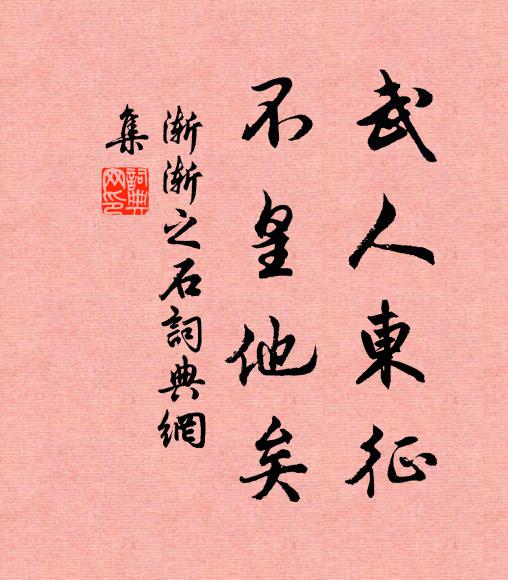 武人東征
不皇他矣
漸漸之石詞典網
集
詞典
网印